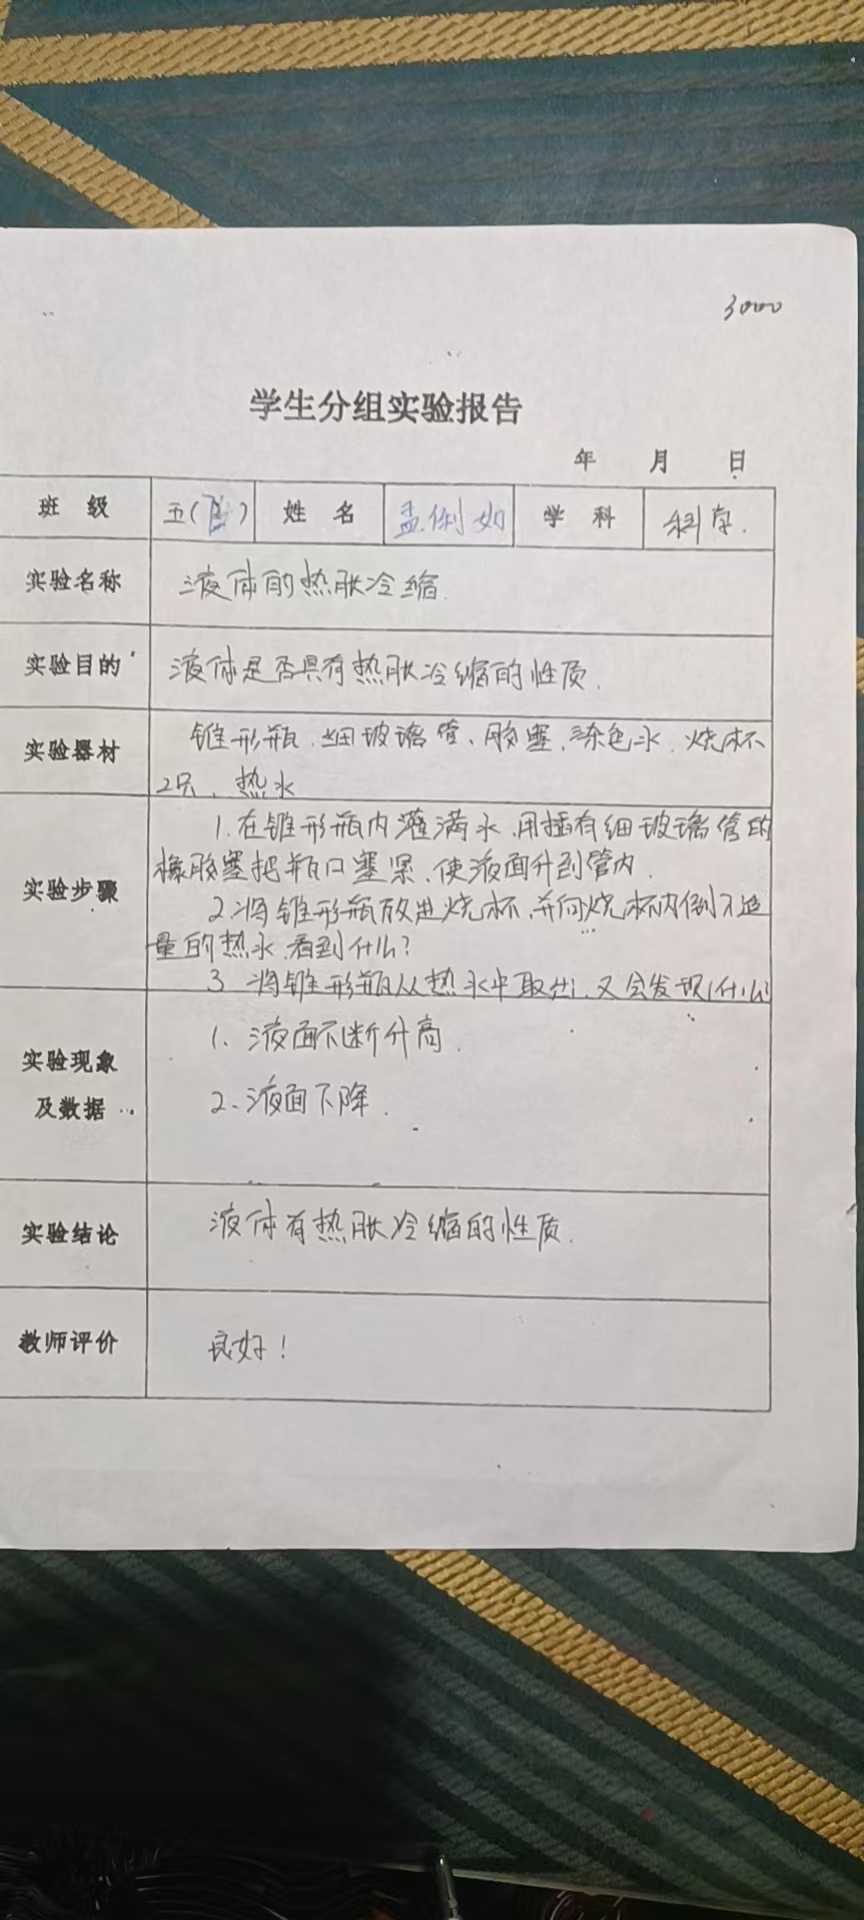 3000
学生分组实验报告
年 月 日
班 级 五( ) 姓 名 孟俐如 学 科 科学.
实验名称 液体的热胀冷缩.
实验目的 液体是否具有热胀冷缩的性质.
实验器材 锥形瓶.细玻璃管、胶塞、涂色水.烧杯
2只、热水
实验步骤 1.在锥形瓶内灌满水,用插有细玻璃管的
橡胶塞把瓶口塞紧、使液面升到管内.
2.将锥形瓶放进烧杯,并向烧杯内倒入适
量的热水.看到什么?
3 将锥形瓶从热水中取出,又会发现什么
实验现象
及数据
1、液面不断升高.
2、液面下降.
实验结论 液体有热胀冷缩的性质.
教师评价 良好!